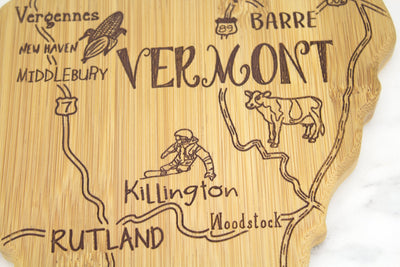 Vergennes
BARRE
89
NEW HAVEN
MIDDLEBURY
VERMONT
7
Killington
Woodstock
RUTLAND